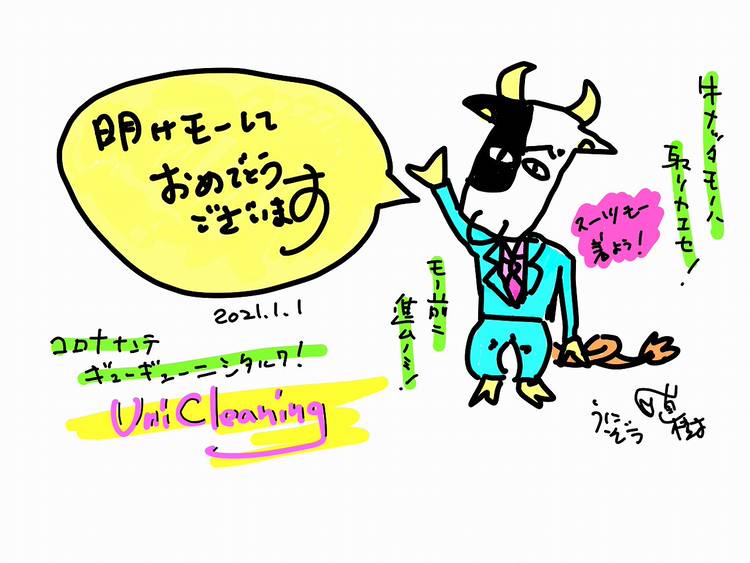 明けモーして
おめでとう
ございます
2021.1.1
コロナナンテ
ギューギューニシタルワ!
UniCleaning
モー前ニ
進ムノミ!
スーツモー
着よう!
牛ナッタモノハ
取リカエセ!
うに
ぞう